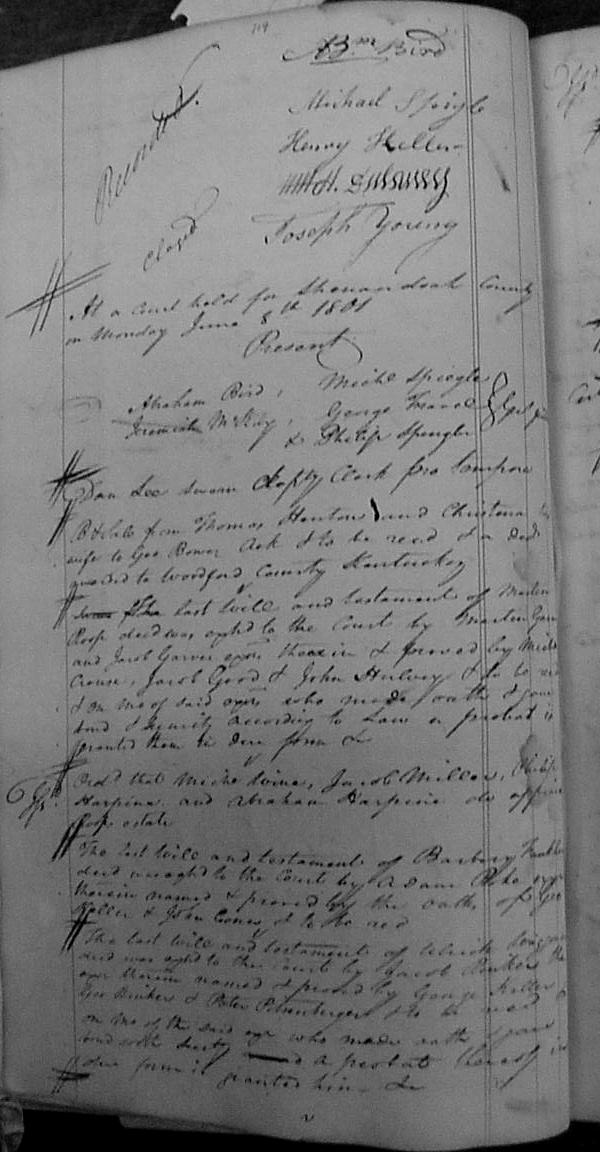 119
Abm Bird
Michael Spigle
Recorded.
Henry Heller
Closed
Joseph Young
At a Court held for Shenandoah County
on Monday June 8th 1801
Present
Abraham Bird, Miche Speigle
Jeremiah McKay, George
& Philip Spengler
Dan Lee sworn Clerk pro tempore
B & Sale from Thomas and Christena his
wife to Geo Bower Ack & to be recd & a ded
awarded to Woodford County Kentucky
The last Will and testament of Martin
Roop decd was exhd to the Court by Martin
and Jacob Garver exors therein & proved by Miche
Crouse, Jacob Good & John & to be recd
& on mo of said exors who made oath & gave
bond & security according to Law a probat is
granted them in due form &c
Ordd that Miche, Jacob Miller, Philip
Harpine and Abraham Harpine do appraise
Roop estate
The last Will and testament of Barbary
decd was exhd to the Court by Adam exor
therein named & proved by the oaths of Geo
Keller & John & to be recd
The last Will and testament of Ulrich
decd was exhd to the Court by Jacob the
exor therein named & proved by George Keller
Geo & Peter & to be recd &
on mo of the said exor who made oath & gave
bond with security a probat thereof in
due form is granted him &c